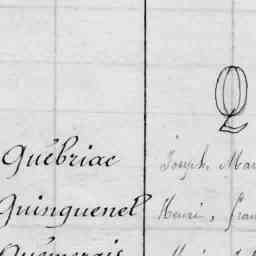 Q
Québriac Joseph, Mar
Quinquenel Henri, Fran
Quémerais